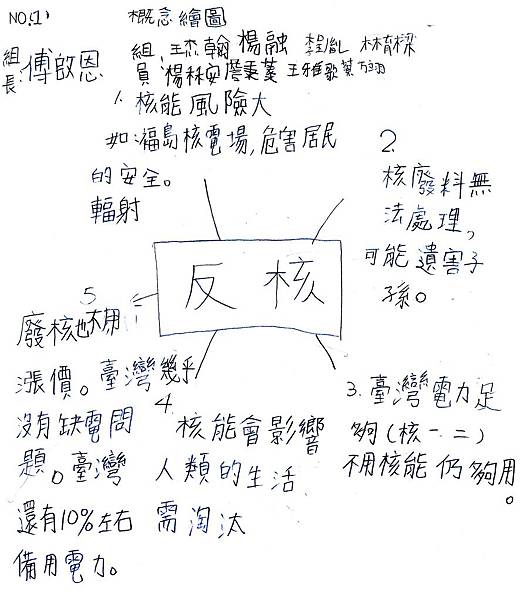 NO.1 概念繪圖
組長:傅啟恩
組員:王杰翰 楊融 林育樑
楊秝安 王雅歌
1. 核能風險大
如:福島核電場,危害居民
的安全。
輻射
2.
核廢料無
法處理,
可能遺害子
孫。
反核
3.臺灣電力足
夠(核一.二)
不用核能仍夠用
。
4.
核能會影響
人類的生活
需淘汰
5
廢核也不用
漲價。臺灣幾乎
沒有缺電問
題。臺灣
還有10%左右
備用電力。